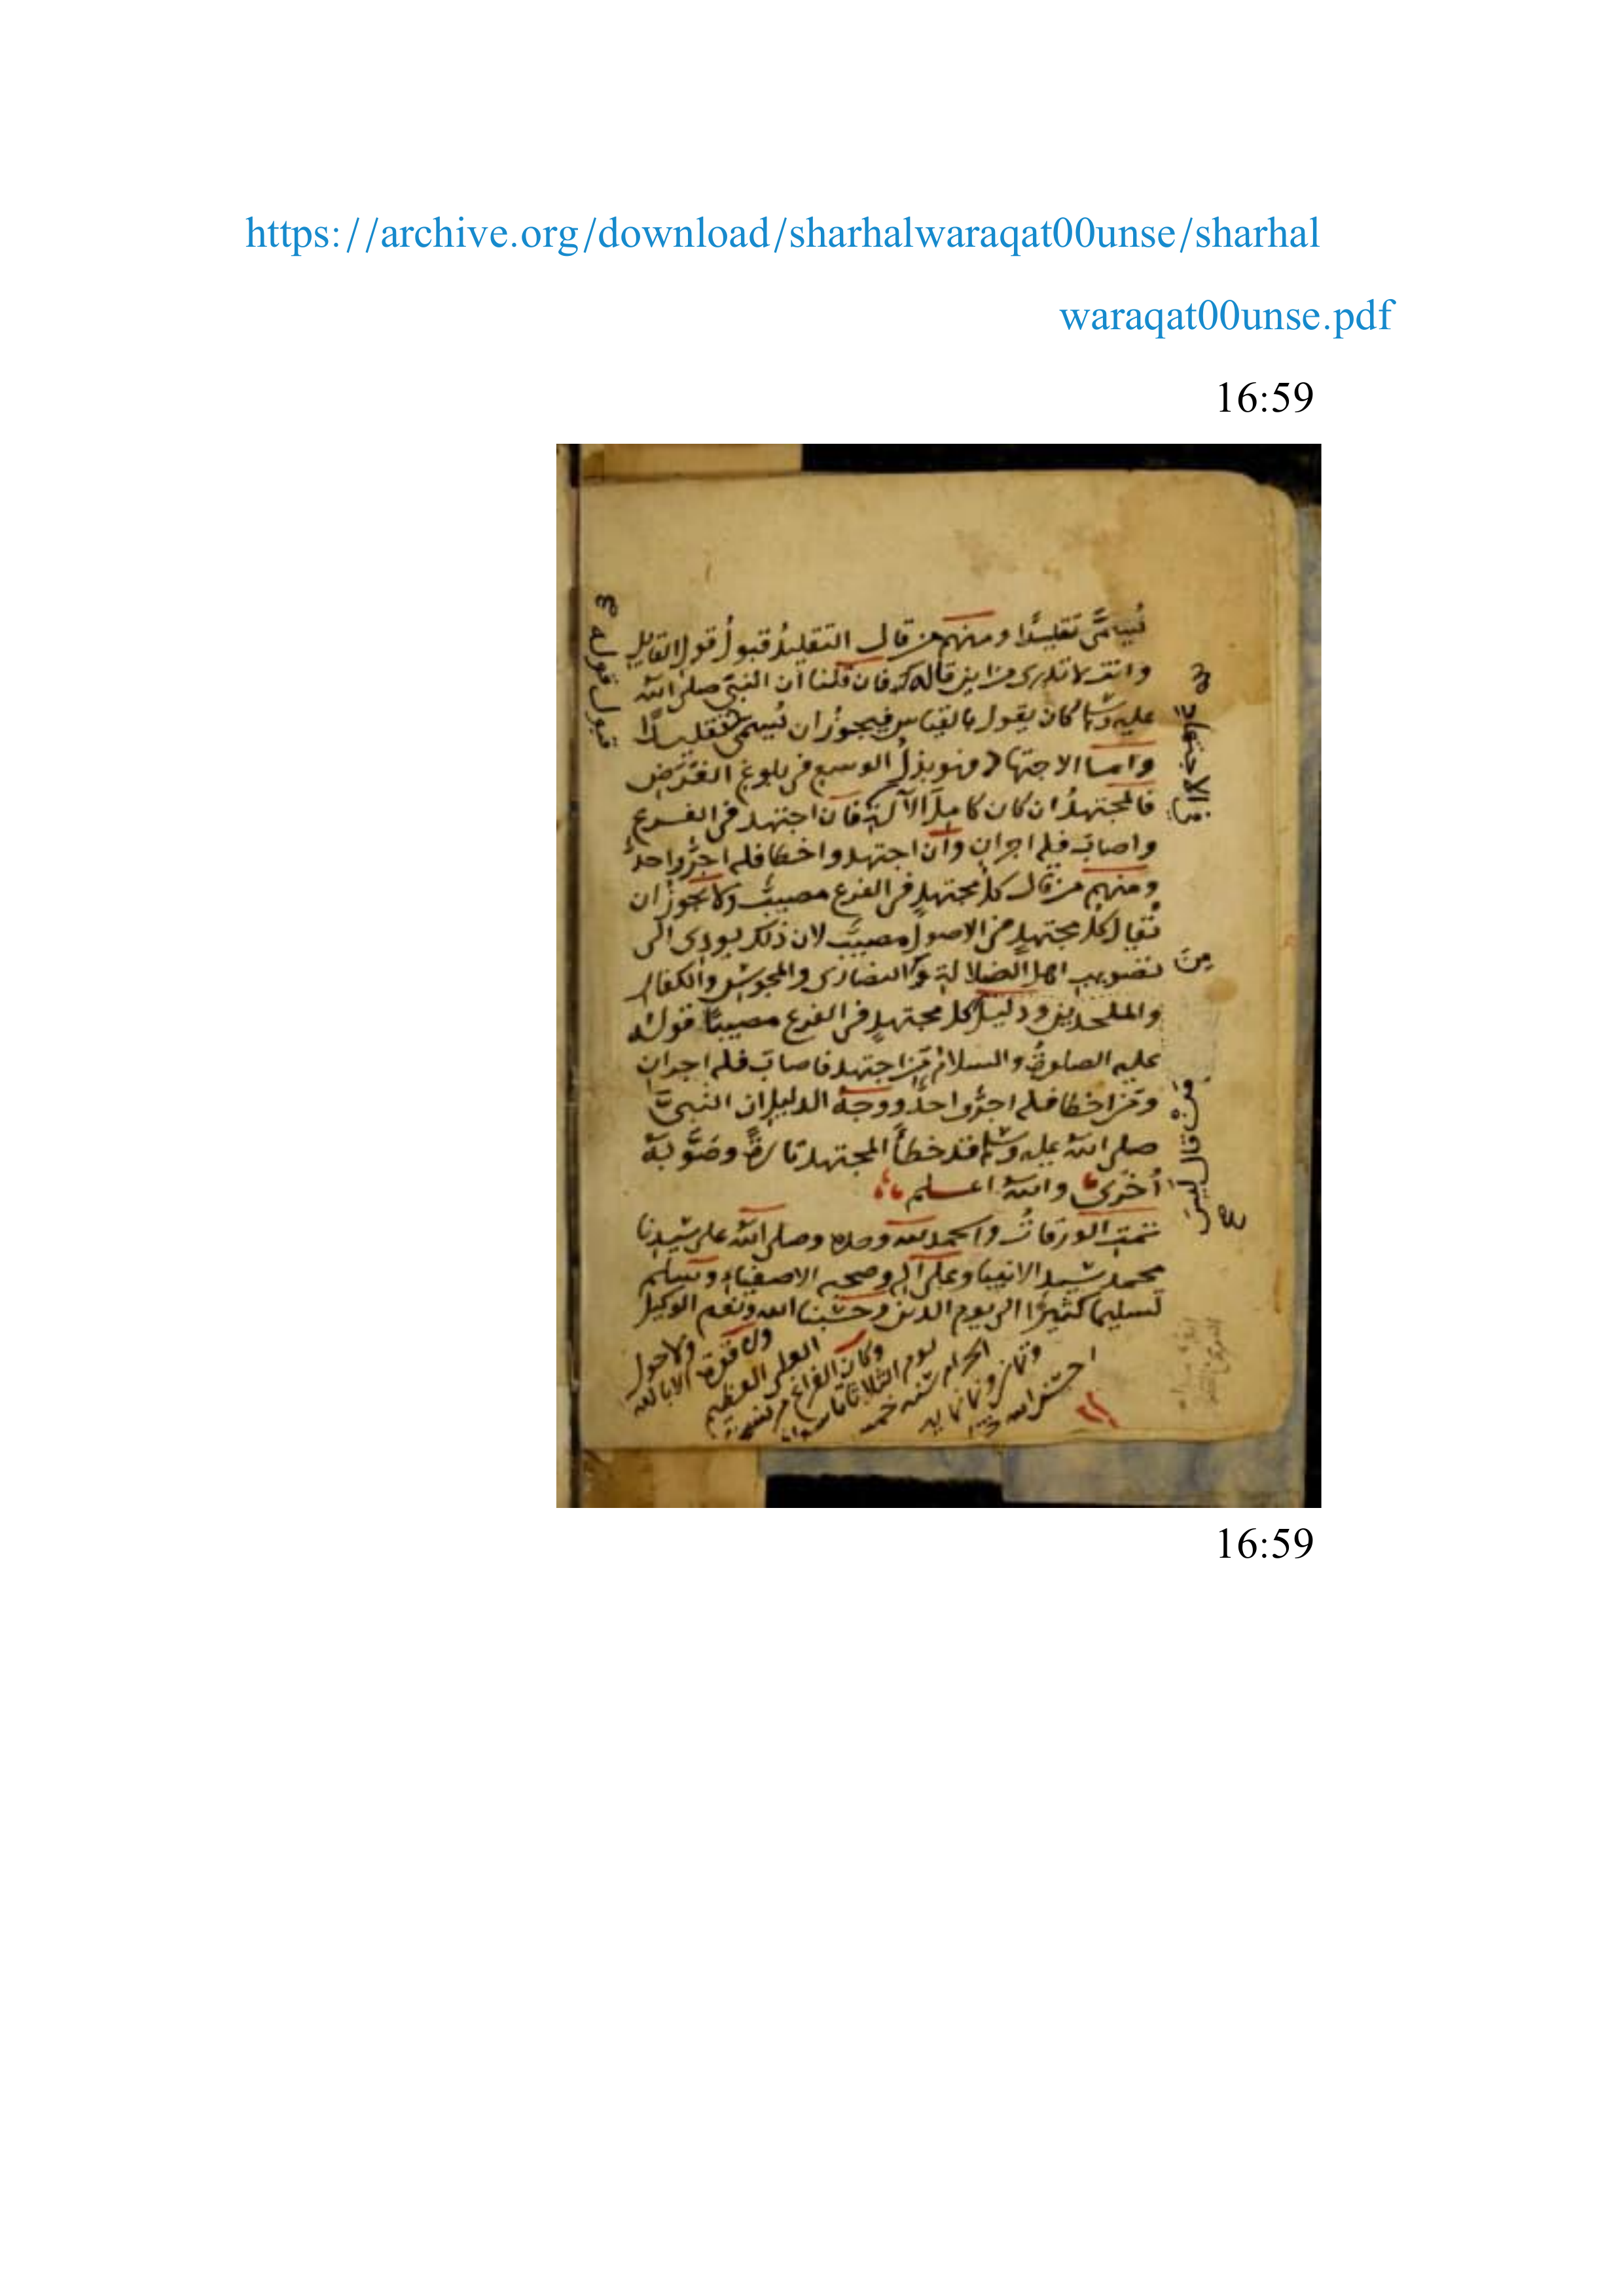 https://archive.org/download/sharhalwaraqat00unse/sharhal
waraqat00unse.pdf
16:59
يُسمَّى تقليدًا ومنهم من قال التقليدُ قبولُ قولِ القايلِ
وانت لا تدرى من اين قاله فان قلنا ان النبىَّ صلى اللهُ
عليه وسلم كان يقول بالقياس فيجوزُ ان يُسمى تقليدًا
واما الاجتهاد فهو بذلُ الوسع فى بلوغ الغَرَضِ
فالمجتهدُ ان كان كامِلَ الآلةِ فان اجتهد فى الفروع
واصابَ فله اجران وان اجتهد واخطا فله اجرٌ واحدٌ
ومنهم من قال كلُّ مجتهدٍ فى الفرع مصيبٌ ولا يجوزُ ان
يُقال كلُّ مجتهدٍ فى الاصول مصيبٌ لان ذلك يودى الى
تصويب اهل الضلالةِ والنصارى والمجوس والكفار
مِنَ
والملحدين ودليل كل مجتهدٍ فى الفرع مصيبًا قولُه
عليه الصلوةُ والسلامُ مَن اجتهد فاصابَ فله اجرانِ
ومَن اخطا فله اجرٌ واحدٌ ووجهُ الدليلِ ان النبىَّ
صلى اللهُ عليه وسلم قد خطأ المجتهد تارةً وصَوَّبهُ
أُخرى واللهُ اعلم
تمت الورقاتُ والحمد لله وحده وصلى اللهُ على سيدنا
محمد سيد الانبيا وعلى آله وصحبه الاصفياء وسلم
تسليما كثيرًا الى يوم الدين وحسبنا الله ونعم الوكيل
ولا حول
ولا قوة الا بالله
العلى العظيم
وكان الفراغ من
يوم الثلاثا
الحرام سنه خمسه
وثمانين وثمانمايه
قبول قوله
الاجتهاد
مَنْ قال ليسَ
16:59